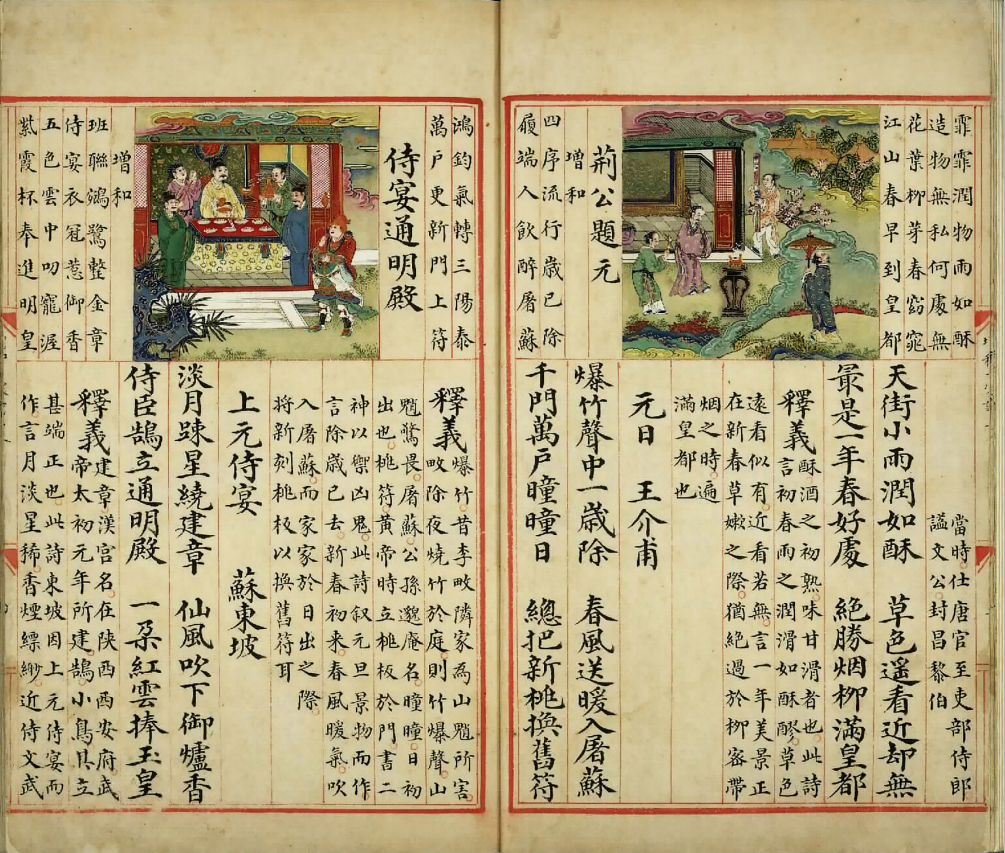 霏霏潤物雨如酥
造物無私何處無
花葉柳芽春窈窕
江山春早到皇都
荊公題元
增和
四序流行歲已除
履端入飲醉屠蘇
當時仕唐官至吏部侍郎
謚文公封昌黎伯
天街小雨潤如酥 草色遙看近却無
最是一年春好處 絕勝烟柳滿皇都
釋義 酥酒之初熟味甘滑者也此詩
言初春雨之潤滑如酥醪草色
遠看似有近看若無言一年美景正
在新春草嫩之際猶絕過於柳容帶
烟之時遍
滿皇都也
元日 王介甫
爆竹聲中一歲除 春風送暖入屠蘇
千門萬戶曈曈日 總把新桃換舊符
鴻鈞氣轉三陽泰
萬戶更新門上符
侍宴通明殿
增和
班聯鴻鷺整金章
侍宴衣冠惹御香
五色雲中叨寵渥
紫霞杯奉進明皇
釋義 爆竹昔李畋隣家為山魈所害
畋除夜燒竹於庭則竹爆聲山
魈驚畏屠蘇公孫邈庵名曈曈日初
出也桃符黃帝時立桃板於門書二
神以禦凶鬼此詩叙元旦景物而作
言除歲已去新春初來春風暖氣吹
入屠蘇而家家於日出之際
將新刻桃板以換舊符耳
上元侍宴 蘇東坡
淡月踈星繞建章 仙風吹下御爐香
侍臣鵠立通明殿 一朶紅雲捧玉皇
釋義 建章漢宮名在陝西西安府武
帝太初元年所建鵠小鳥其立
甚端正也此詩東坡因上元侍宴而
作言月淡星稀香煙縹緲近侍文武